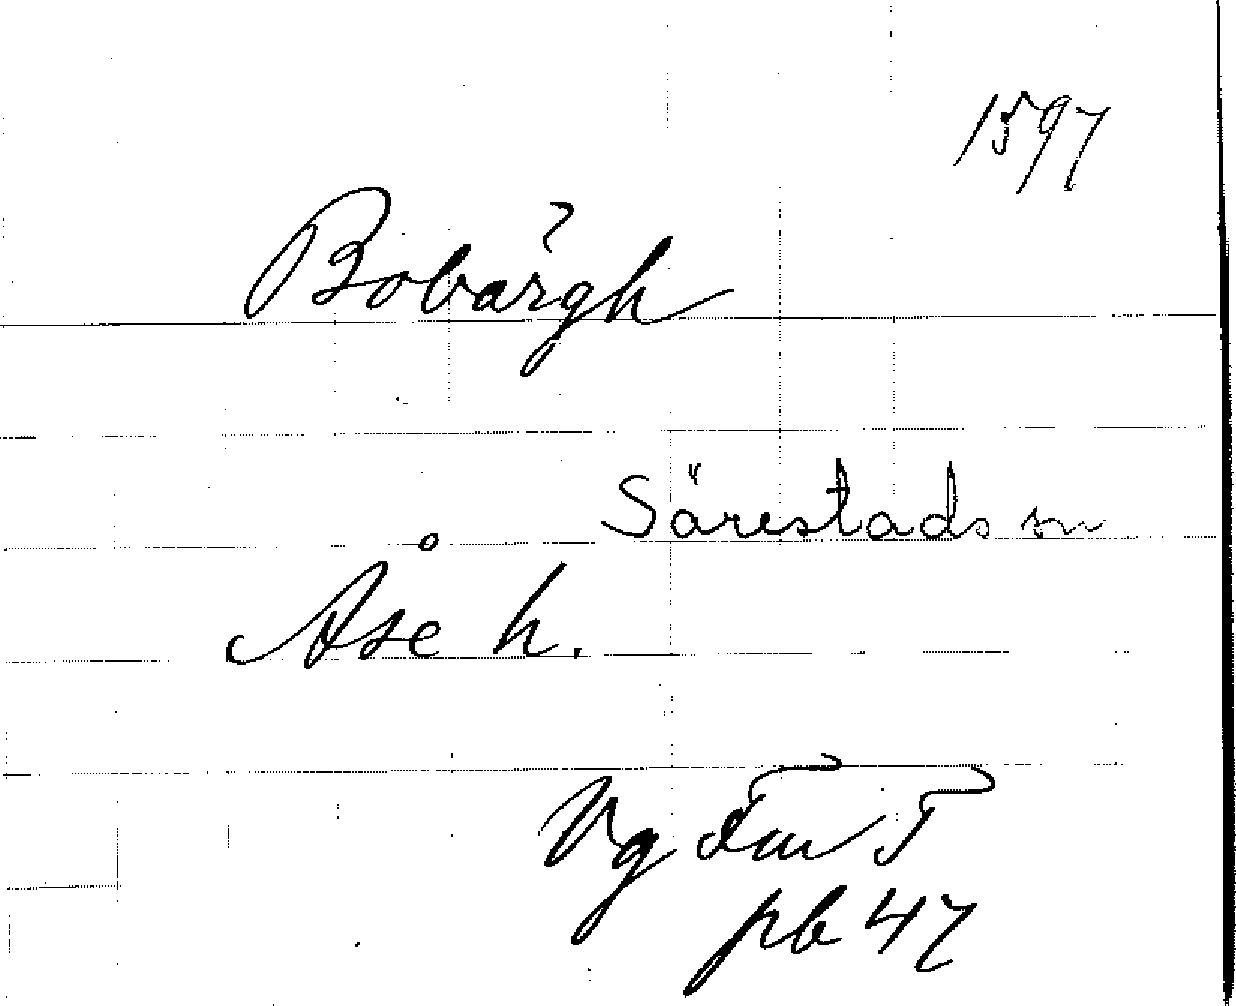 1597
Bobärgh
Särestads sn
Åse h.
Vg Fm T
pb 47